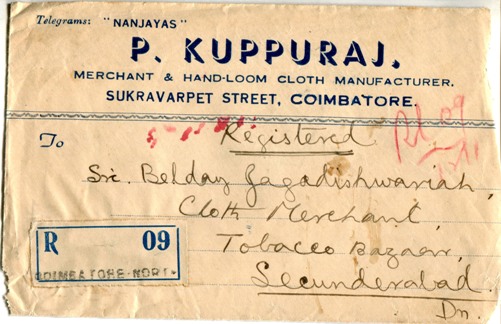 Telegrams: "NANJAYAS"
P. KUPPURAJ,
MERCHANT & HAND-LOOM CLOTH MANUFACTURER,
SUKRAVARPET STREET, COIMBATORE.
Registered
To
Sri. Belday Jagadishwariah,
Cloth Merchant,
Tobacco Bazaar,
Secunderabad
Dn.
R 09
COIMBATORE-NORTH